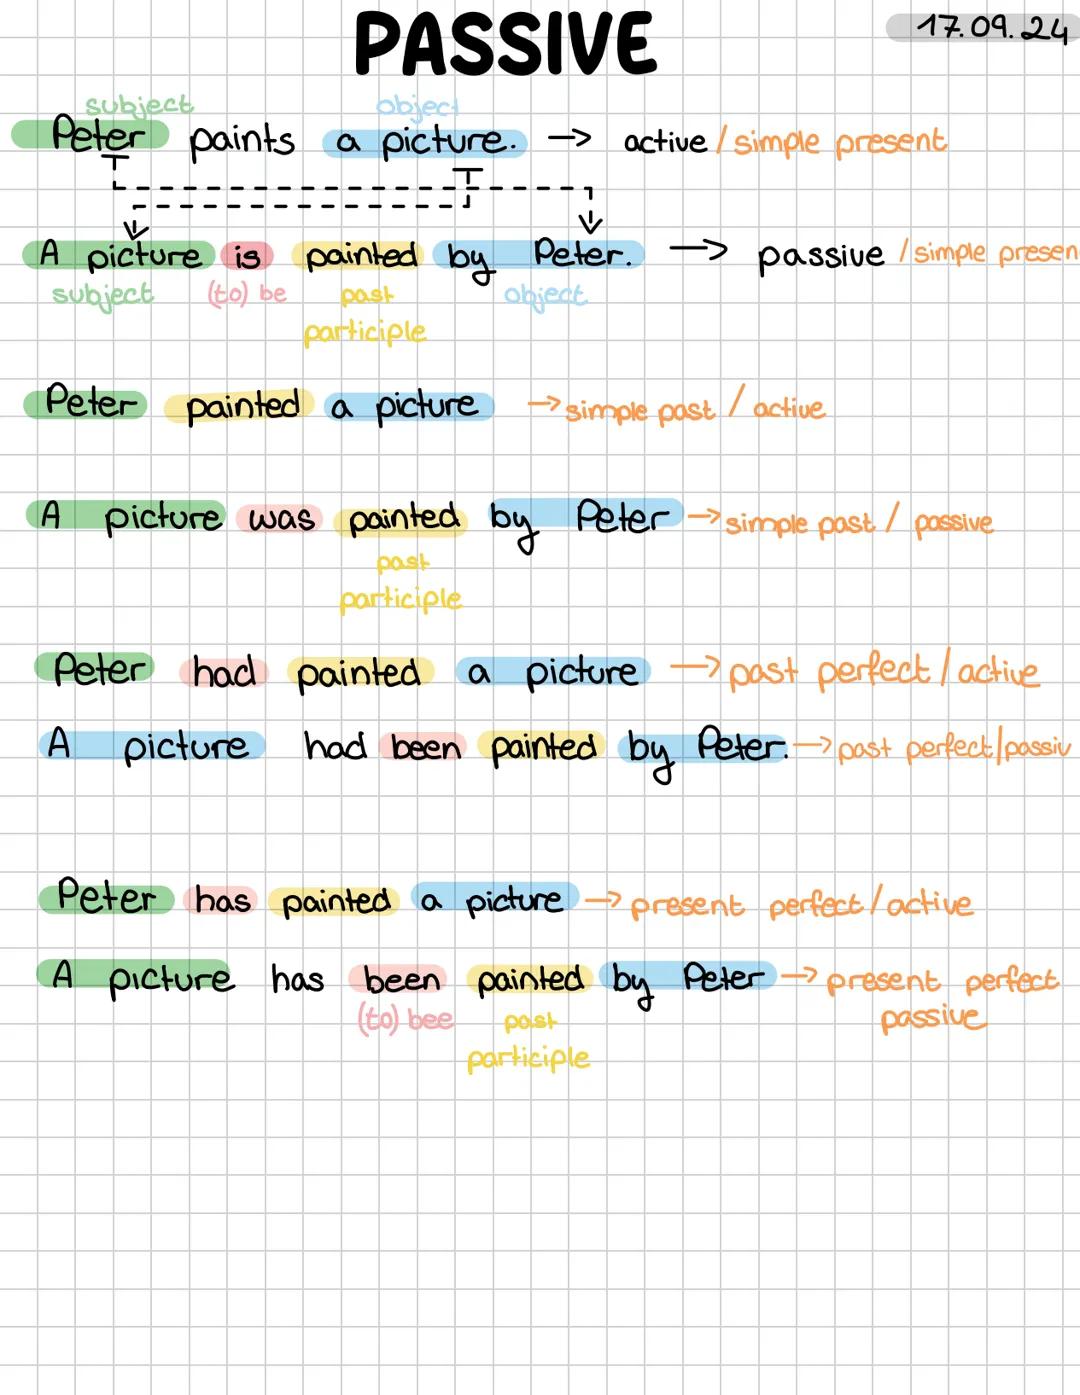 PASSIVE
17.09.24
subject object
Peter paints a picture. → active / simple present
A picture is painted by Peter. → passive / simple presen
subject (to) be past object
participle
Peter painted a picture → simple past / active
A picture was painted by Peter → simple past / passive
past
participle
Peter had painted a picture → past perfect / active
A picture had been painted by Peter. → past perfect | passiv
Peter has painted a picture → present perfect / active
A picture has been painted by Peter → present perfect
passive
(to) bee past
participle